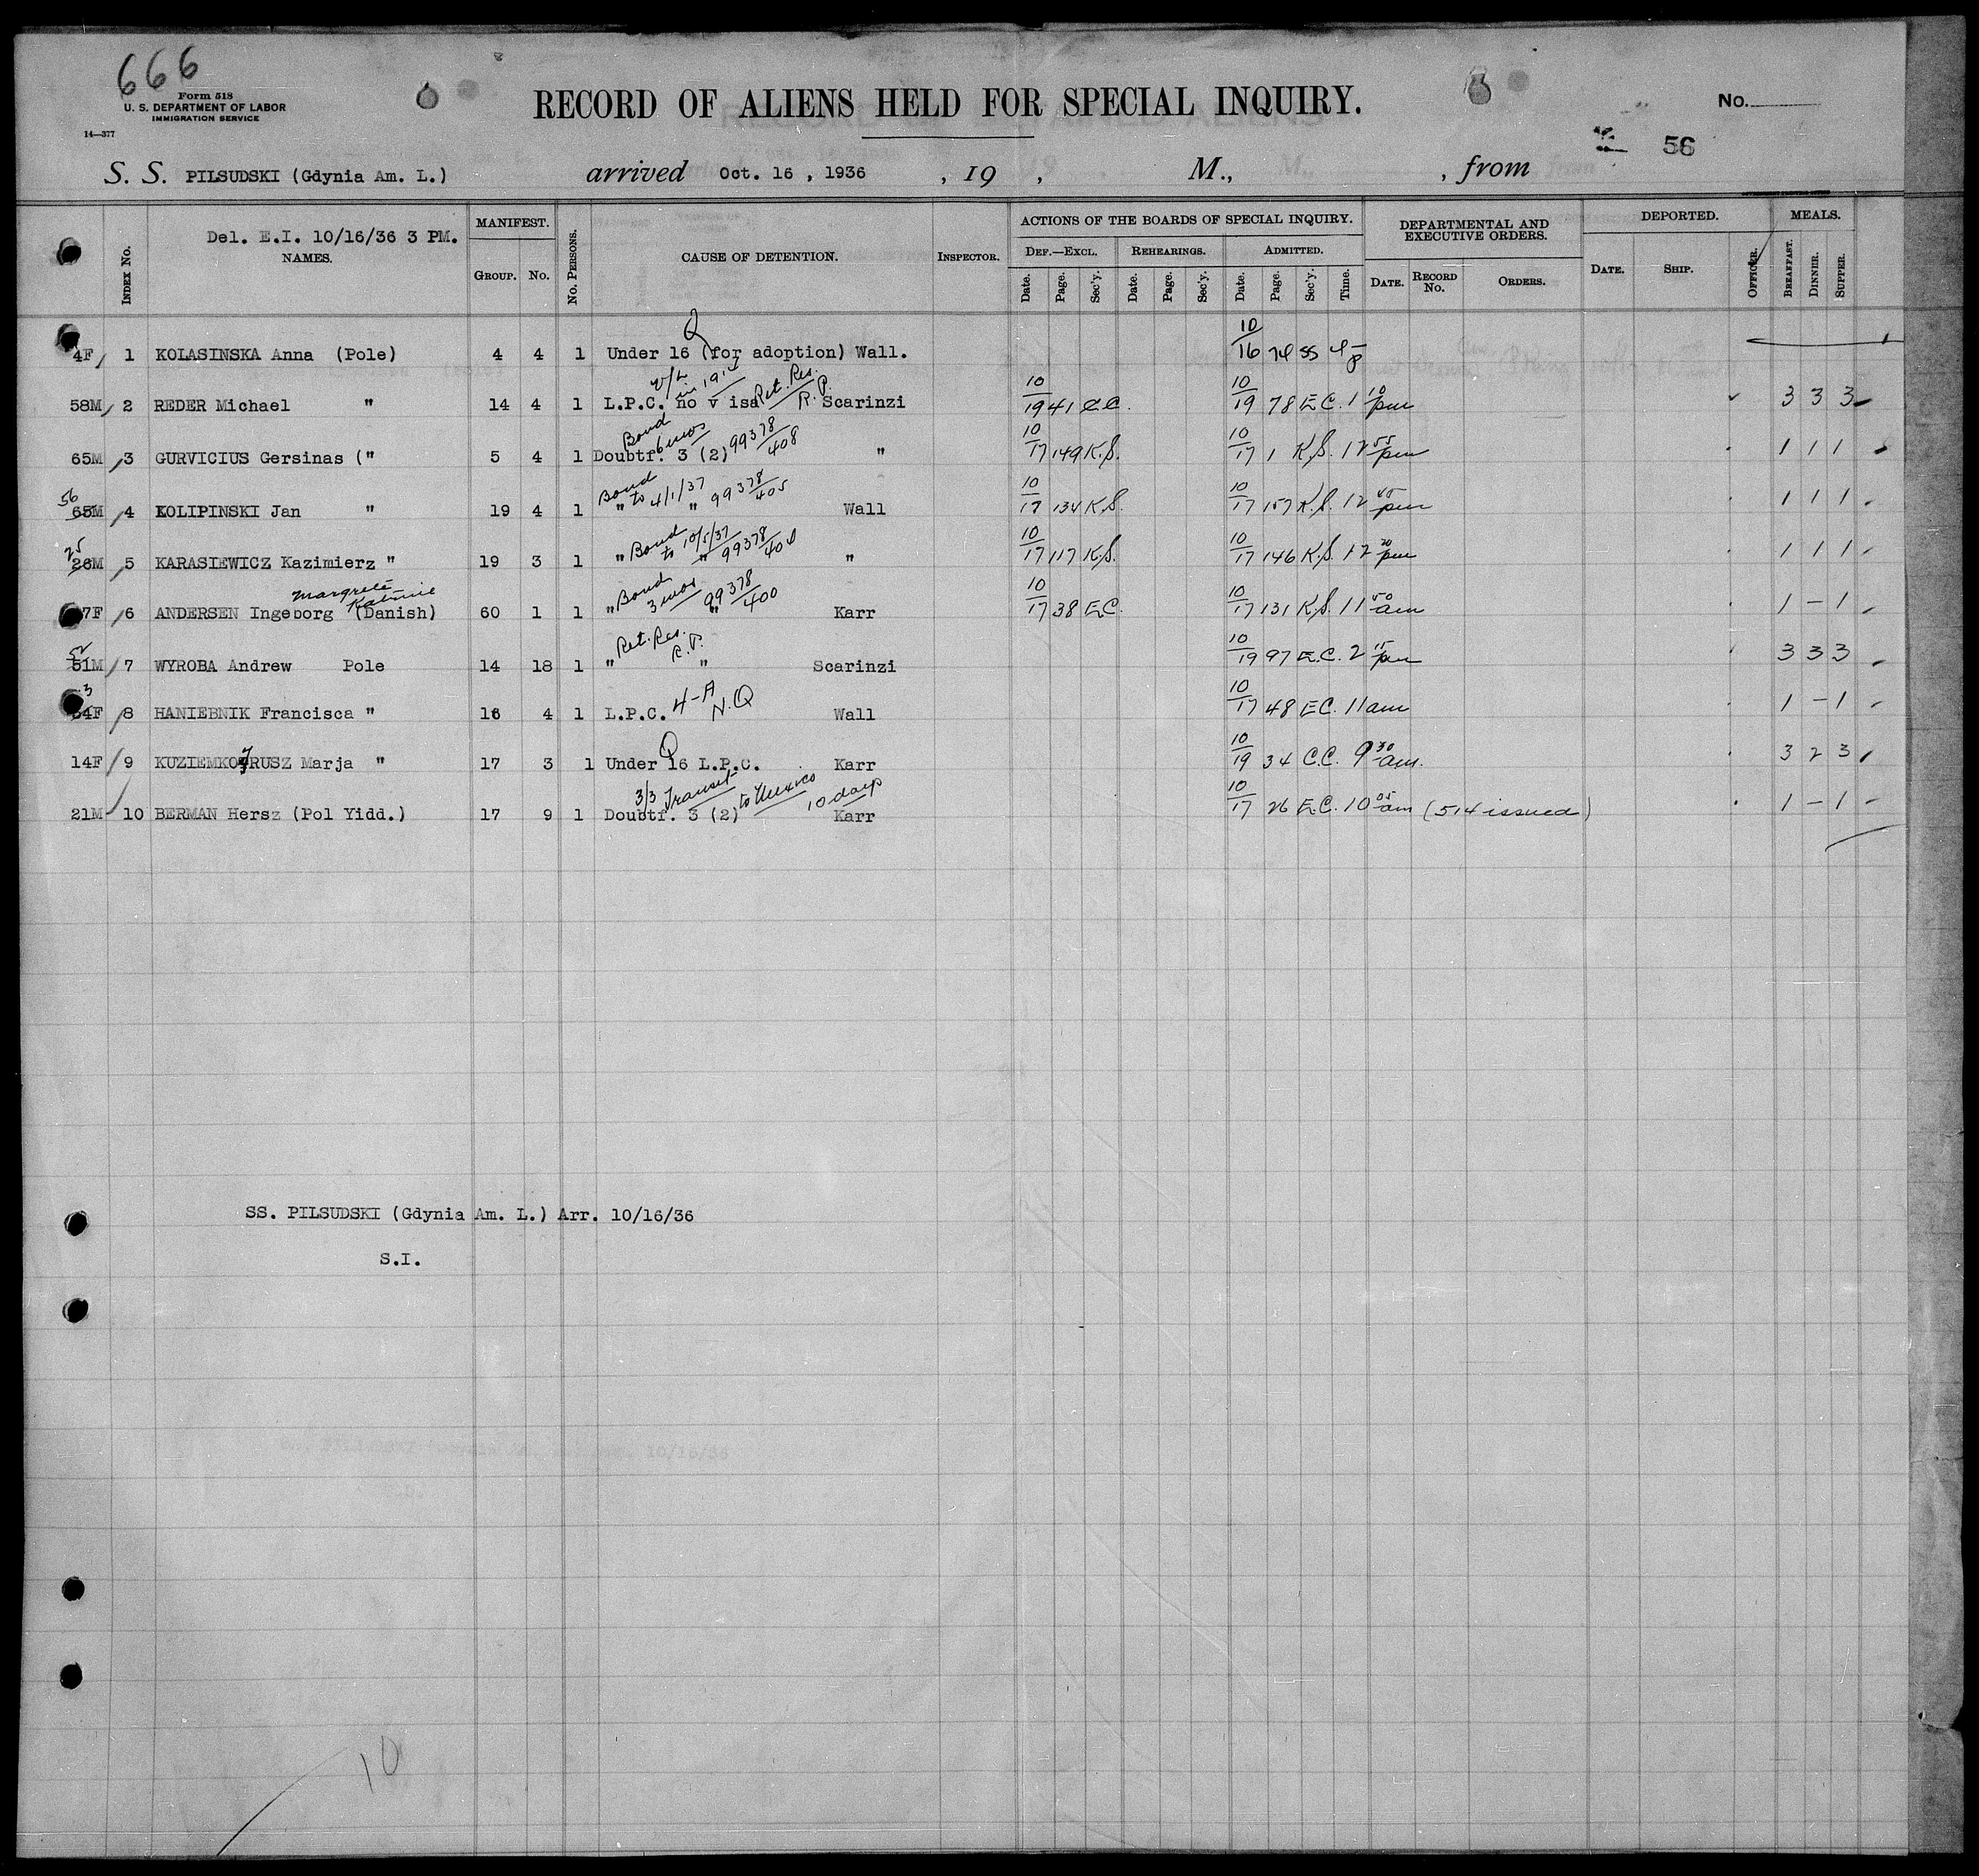 666
Form 518
U. S. DEPARTMENT OF LABOR
IMMIGRATION SERVICE
14—377
RECORD OF ALIENS HELD FOR SPECIAL INQUIRY.
No.
56
S. S. PILSUDSKI (Gdynia Am. L.) arrived Oct. 16 , 1936 , 19 , M., , from
Del. E.I. 10/16/36 3 PM.
INDEX NO. NAMES. MANIFEST. GROUP. NO. NO. PERSONS. CAUSE OF DETENTION. INSPECTOR. ACTIONS OF THE BOARDS OF SPECIAL INQUIRY. DEF.—EXCL. Date. Page. Sec'y. REHEARINGS. Date. Page. Sec'y. ADMITTED. Date. Page. Sec'y. Time. DEPARTMENTAL AND EXECUTIVE ORDERS. DATE. RECORD NO. ORDERS. DEPORTED. DATE. SHIP. OFFICER. MEALS. BREAKFAST. DINNER. SUPPER.
Q
4F 1 KOLASINSKA Anna (Pole) 4 4 1 Under 16 (for adoption) Wall. 10/16 74 SS 4 p
in 1914 Ret. Res. R.P.
58M 2 REDER Michael " 14 4 1 L.P.C. no v isa Scarinzi 10/19 41 C.C. 10/19 78 E.C. 1 10 pm 3 3 3
Bond 6 mos 99378/408
65M 3 GURVICIUS Gersinas (" 5 4 1 Doubtf. 3 (2) " 10/17 149 K.S. 10/17 1 K.S. 12 55 pm 1 1 1
Bond to 4/1/37 99378/405
56 65M 4 KOLIPINSKI Jan " 19 4 1 " " Wall 10/17 134 K.S. 10/17 157 K.S. 12 45 pm 1 1 1
Bond to 10/5/37 99378/404
25 28M 5 KARASIEWICZ Kazimierz " 19 3 1 " " " 10/17 117 K.S. 10/17 146 K.S. 12 20 pm 1 1 1
Margrete Bond 3 mos 99378/400
7F 6 ANDERSEN Ingeborg (Danish) 60 1 1 " " Karr 10/17 38 E.C. 10/17 131 K.S. 11 50 am 1 – 1
Ret. Res. R.P.
52 51M 7 WYROBA Andrew Pole 14 18 1 " " Scarinzi 10/19 97 E.C. 2 15 pm 3 3 3
4-A N.Q
3 4F 8 HANIEBNIK Francisca " 16 4 1 L.P.C. Wall 10/17 48 E.C. 11 am 1 – 1
Q
14F 9 KUZIEMKO RUSZ Marja " 17 3 1 Under 16 L.P.C. Karr 10/19 34 C.C. 9 30 am. 3 2 3
3/3 Transit to Mexico 10 days
21M 10 BERMAN Hersz (Pol Yidd.) 17 9 1 Doubtf. 3 (2) Karr 10/17 26 E.C. 10 05 am (514 issued) 1 – 1
SS. PILSUDSKI (Gdynia Am. L.) Arr. 10/16/36
S.I.
10